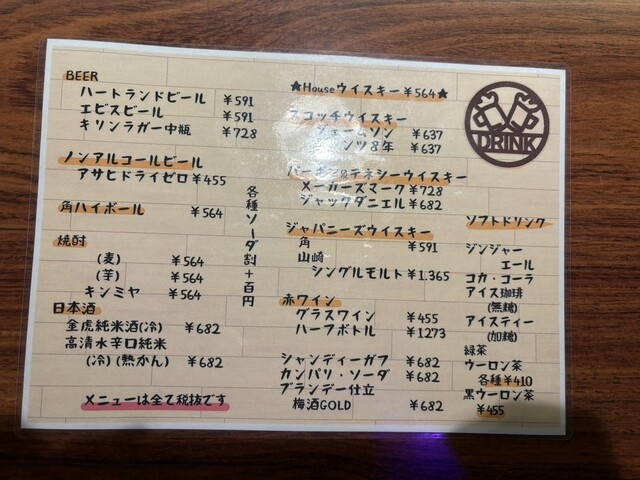 BEER
ハートランドビール ¥591
エビスビール ¥591
キリンラガー中瓶 ¥728
ノンアルコールビール
アサヒドライゼロ ¥455
角ハイボール ¥564
焼酎
(麦) ¥564
(芋) ¥564
キンミヤ ¥564
日本酒
金虎純米酒(冷) ¥682
高清水辛口純米
(冷)(熱かん) ¥682
メニューは全て税抜です
各種ソーダ割+百円
★Houseウイスキー ¥564★
スコッチウイスキー
ジェームソン ¥637
ンツ8年 ¥637
バーボン&テネシーウイスキー
メーカーズマーク ¥728
ジャックダニエル ¥682
ジャパニーズウイスキー
角 ¥591
山崎
シングルモルト ¥1.365
赤ワイン
グラスワイン ¥455
ハーフボトル ¥1273
シャンディーガフ ¥682
カンパリ・ソーダ ¥682
ブランデー仕立
梅酒GOLD ¥682
DRINK
ソフトドリンク
ジンジャー
エール
コカ・コーラ
アイス珈琲
(無糖)
アイスティー
(加糖)
緑茶
ウーロン茶
各種 ¥410
黒ウーロン茶
¥455